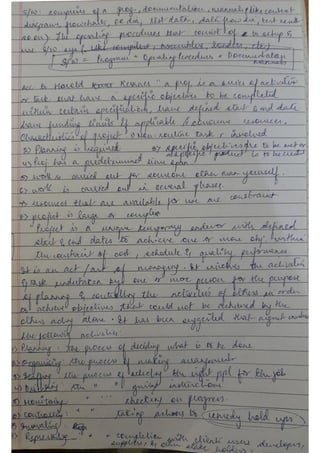 S/w: comprises of a prog, documentation, manuals like context
diagram, flowcharts,
so on). The operating procedures that consist of to setup &
use S/w sys (like compilers, assemblers, loader, etc)
S/w = Program + Operating procedure + Documentation
manuals
Acc to Harold Kerzner "a proj is a series of activities
or task that have a specific objectives to be completed
within certain specification, have defined start & end date
have funding limits if applicable & consume resources,
Characteristics of project non routine task r involved
2) Planning is required 3) specific objectives r to be met or
specific product is to be created
4) Proj has a predetermined time span.
5) work is carried out for someone other than yourself.
6) work is carried out in several phases.
7) resources that are available for use are constraint
8) project is large or complex
"Project is a unique temporary endeavor with defined
start & end dates to achieve one or more obj within
the constraint of cost, schedule & quality performance
It is an act / art of managing. It involves the activities
& task undertaken by one or more person for the purpose
of planning & controlling the activities of others in order
to achieve objectives that could not be achieved by the
others acting alone. It has been suggested that
the following activities.
1) Planning - the process of deciding what is to be done
2) Organising the process of making arrangement
3) Staffing the process of selecting the right ppl for the job
4) " " giving instructions
5) Monitoring " " checking on progress.
6) Controlling " " taking actions to remedy hold ups
7) Innovating
8) Representing " with clients users developers,
suppliers & other stake holders